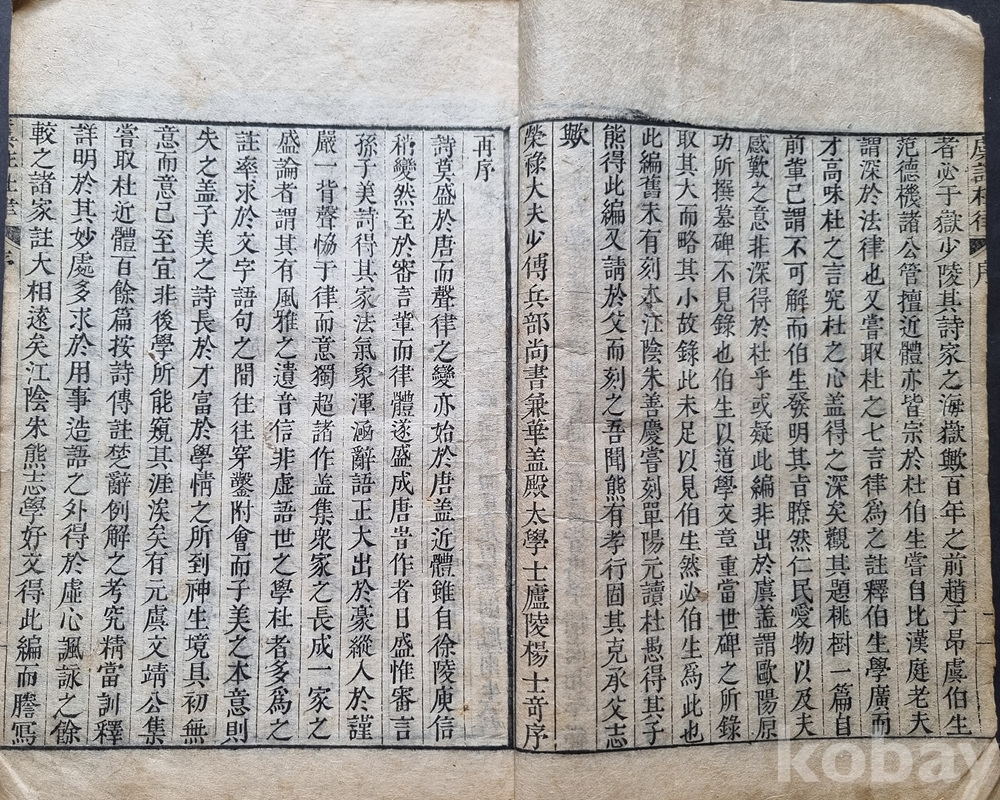 虞註杜律 序
者必于嶽少陵其詩家之海嶽歟百年之前趙子昂虞伯生
范德機諸公管擅近體亦皆宗於杜伯生嘗自比漢庭老夫
謂深於法律也又嘗取杜之七言律為之註釋伯生學廣而
才高味杜之言究杜之心盖得之深矣觀其題桃樹一篇自
前軰已謂不可解而伯生發明其旨瞭然仁民愛物以及夫
感歎之意非深得於杜乎或疑此編非出於虞盖謂歐陽原
功所撰墓碑不見錄也伯生以道學文章重當世碑之所錄
取其大而略其小故錄此未足以見伯生然必伯生為此也
此編舊未有刻本江陰朱善慶嘗刻單陽元讀杜愚得其子
熊得此編又請於父而刻之吾聞熊有孝行固其克承父志
歟
榮祿大夫少傅兵部尚書兼華盖殿大學士廬陵楊士竒序
再序
詩莫盛於唐而聲律之變亦始於唐盖近體雖自徐陵庾信
稍變然至於審言軰而律體遂盛成唐旹作者日盛惟審言
孫子美詩得其家法氣象渾涵辭語正大出於豪縱入於謹
嚴一背聲恊于律而意獨超諸作盖集衆家之長成一家之
盛論者謂其有風雅之遺音信非虛語世之學杜者多為之
註率求於文字語句之間往往穿鑿附會而子美之本意則
失之盖子美之詩長於才富於學情之所到神生境具初無
意而意已至宜非後學所能窺其涯涘矣有元虞文靖公集
嘗取杜近體百餘篇按詩傳註楚辭例解之考究精當訓釋
詳明於其妙處多求於用事造語之外得於虛心諷詠之餘
較之諸家註大相遠矣江陰朱熊志學好文得此編而謄寫
kobay